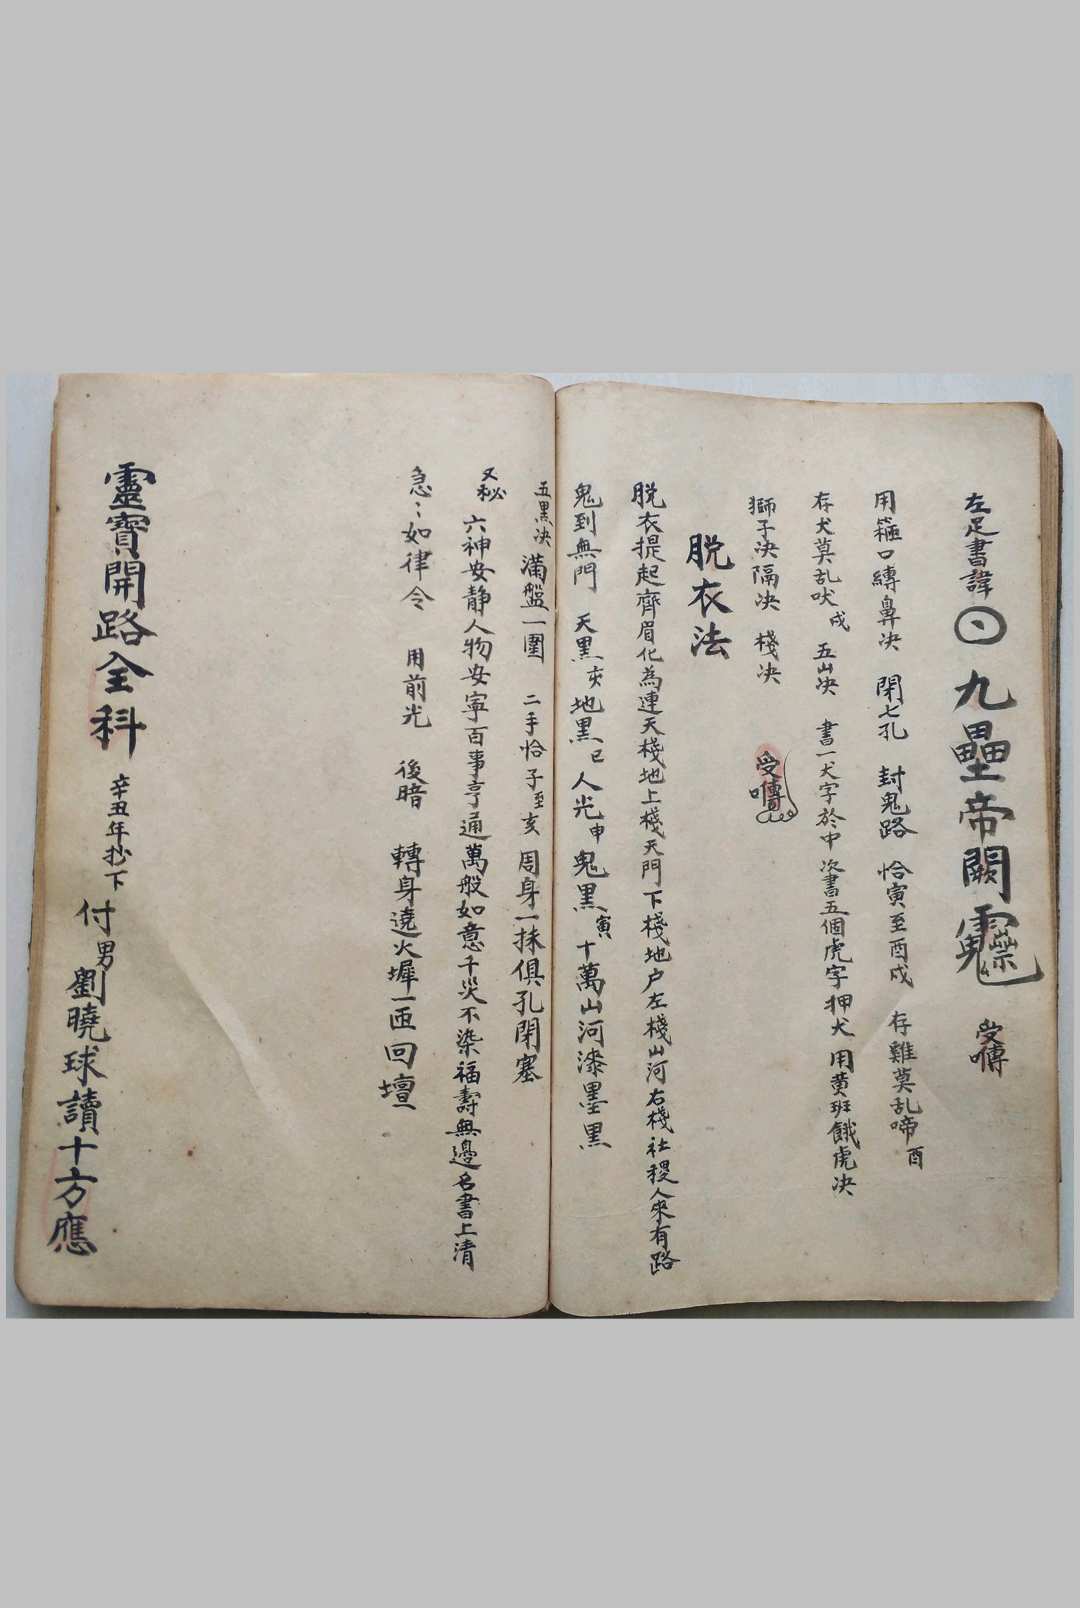 左足書諱 九壘帝闕 受囀
用箍口縛鼻决 閉七孔 封鬼路 恰寅至酉戍 存雞莫乱啼酉
存犬莫乱吠戍 五山决 書一犬字於中 次書五個虎字押犬 用黄班餓虎决
獅子决隔决 棧决 受囀
脱衣法
脱衣提起齊眉化為連天棧地上棧天門下棧地户左棧山河右棧社稷人來有路
鬼到無門 天黒亥地黒巳 人光申鬼黒寅 十萬山河漆墨黒
五黒决 满盤一圍 二手恰子至亥 周身一抹俱孔閉塞
又秘 六神安静人物安寧百事亨通萬般如意千災不染福壽無邊名書上清
急〻如律令 用前光 後暗 轉身遶火墀一匝回壇
靈寳開路全科 辛丑年抄下 付男劉曉球讀十方應